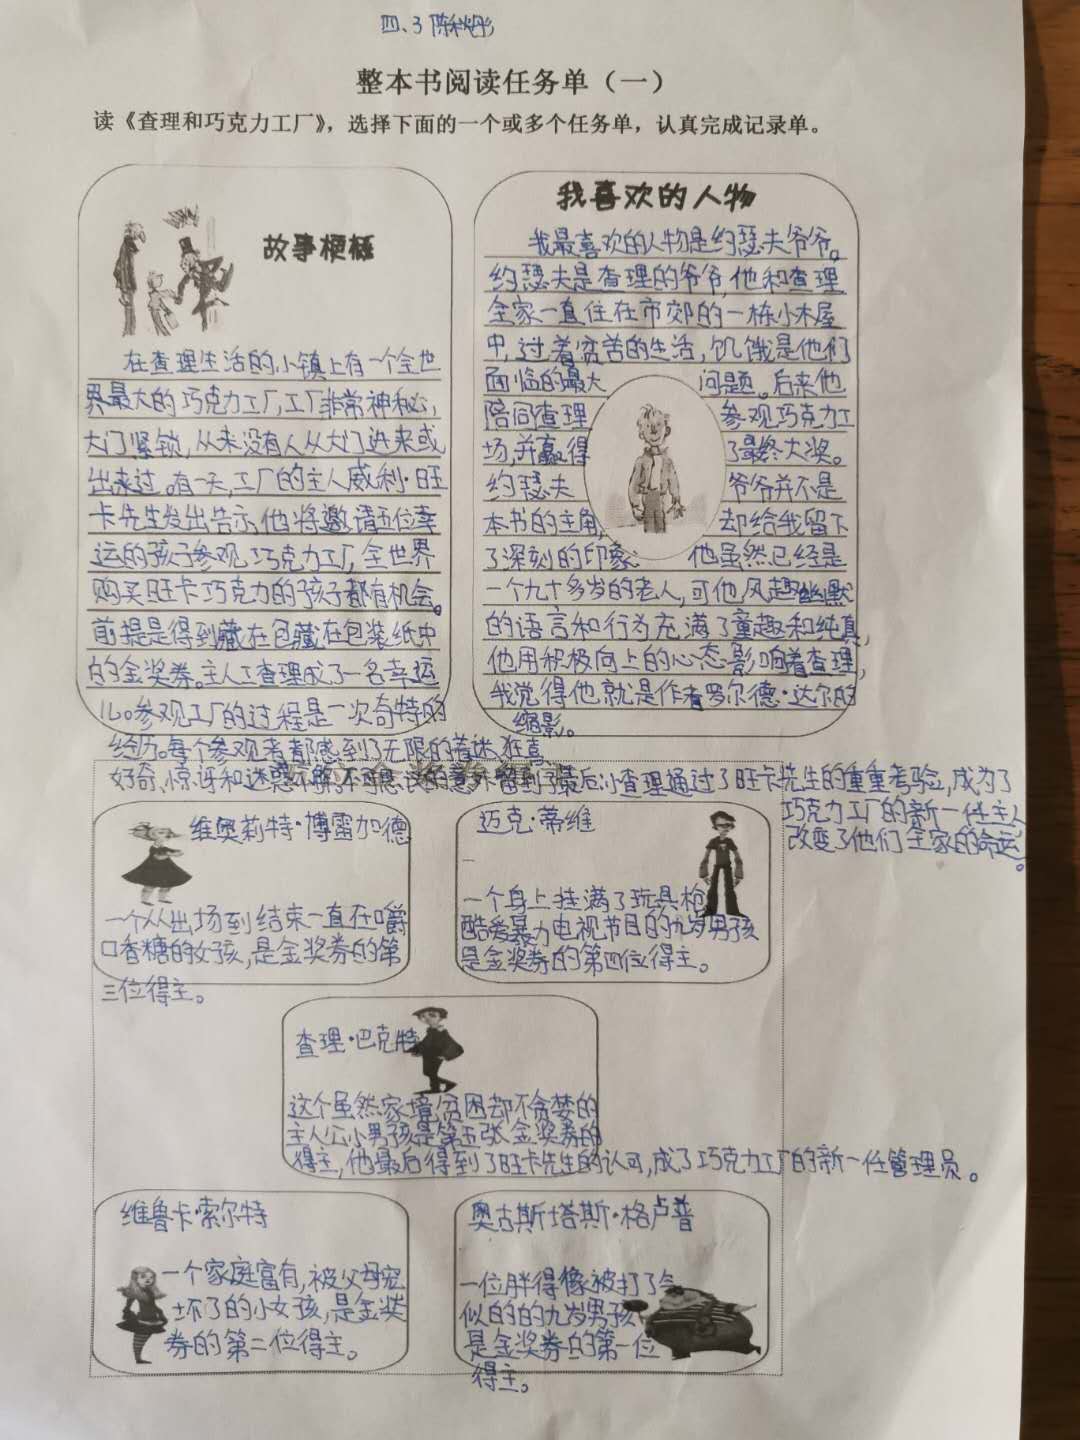 四、3 陈秋彤
整本书阅读任务单（一）
读《查理和巧克力工厂》，选择下面的一个或多个任务单，认真完成记录单。
故事梗概
在查理生活的小镇上有一个全世
界最大的巧克力工厂,工厂非常神秘,
大门紧锁,从来没有人从大门进来或
出来过。有一天,工厂的主人威利·旺
卡先生发出告示,他将邀请五位幸
运的孩子参观巧克力工厂,全世界
购买旺卡巧克力的孩子都有机会。
前提是得到藏在包藏在包装纸中
的金奖券。主人工查理成了一名幸运
儿。参观工厂的过程是一次奇特的
经历。每个参观者都感到了无限的着迷、狂喜、
好奇、惊讶和迷惑不解,不可思议的意外留到了最后,小查理通过了旺卡先生的重重考验,成为了
巧克力工厂的新一任主人
改变了他们全家的命运。
我喜欢的人物
我最喜欢的人物是约瑟夫爷爷。
约瑟夫是查理的爷爷,他和查理
全家一直住在市郊的一栋小木屋
中,过着贫苦的生活,饥饿是他们
面临的最大问题。后来他
陪同查理参观巧克力工
场,并赢得了最终大奖。
约瑟夫爷爷并不是
本书的主角,却给我留下
了深刻的印象:他虽然已经是
一个九十多岁的老人,可他风趣幽默
的语言和行为充满了童趣和纯真,
他用积极向上的心态影响着查理,
我觉得他就是作者罗尔德·达尔的
缩影。
维奥莉特·博雷加德
一个从出场到结束一直在嚼
口香糖的女孩,是金奖券的第
三位得主。
迈克·蒂维
一个身上挂满了玩具枪
酷爱暴力电视节目的九岁男孩
是金奖券的第四位得主。
查理·巴克特
这个虽然家境贫困却不贪婪的
主人公小男孩是第五张金奖券的
得主,他最后得到了旺卡先生的认可,成了巧克力工厂的新一任管理员。
维鲁卡·索尔特
一个家庭富有,被父母宠
坏了的小女孩,是金奖
券的第二位得主。
奥古斯塔斯·格卢普
一位胖得像被打了气
似的的九岁男孩
是金奖券的第一位
得主。